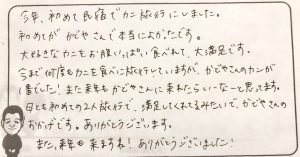 今年、初めて民宿でカニ旅行にしました。
初めてが かどやさんで本当によかったです。
大好きなカニをお腹いっぱい食べれて、大満足です。
今まで何度もカニを食べに旅行していますが、かどやさんのカニが
1番でした! また来年も かどやさんに来れたらいいなーと思ってます。
母とも初めての2人旅行で、満足してくれてるみたいで、かどやさんの
おかげです。ありがとうございます。
また、来年も来ますね! ありがとうございました!